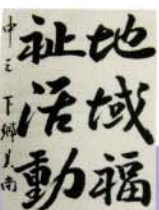 地域福
祉活動
中三 下郷美南